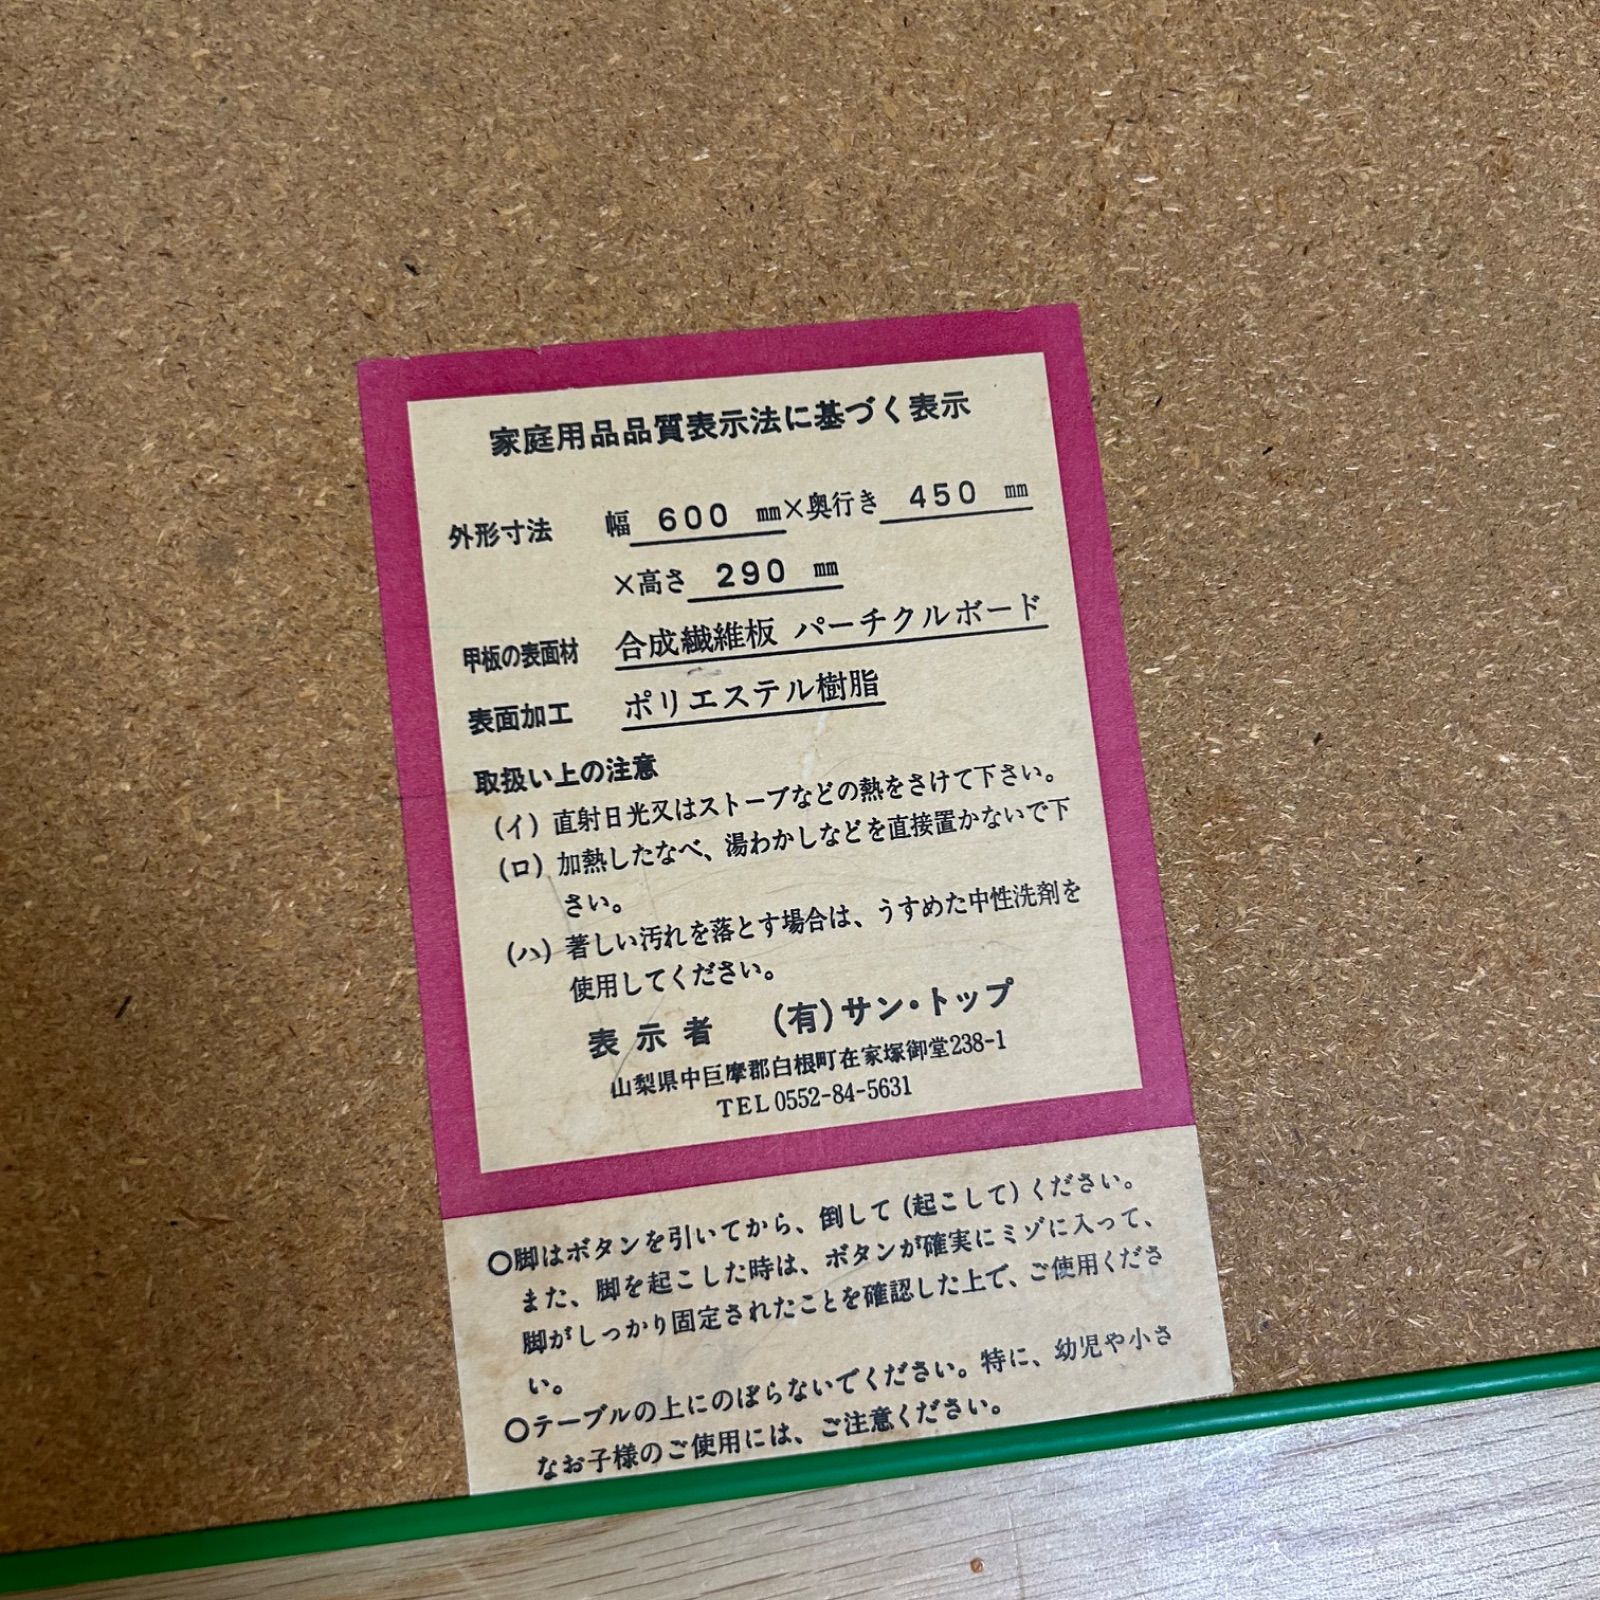 家庭用品品質表示法に基づく表示
外形寸法 幅 600 ㎜×奥行き 450 ㎜
×高さ 290 ㎜
甲板の表面材 合成繊維板 パーチクルボード
表面加工 ポリエステル樹脂
取扱い上の注意
(イ) 直射日光又はストーブなどの熱をさけて下さい。
(ロ) 加熱したなべ、湯わかしなどを直接置かないで下
さい。
(ハ) 著しい汚れを落とす場合は、うすめた中性洗剤を
使用してください。
表示者 (有)サン・トップ
山梨県中巨摩郡白根町在家塚御堂238-1
TEL 0552-84-5631
○脚はボタンを引いてから、倒して(起こして)ください。
また、脚を起こした時は、ボタンが確実にミゾに入って、
脚がしっかり固定されたことを確認した上で、ご使用くださ
い。
○テーブルの上にのぼらないでください。特に、幼児や小さ
なお子様のご使用には、ご注意ください。